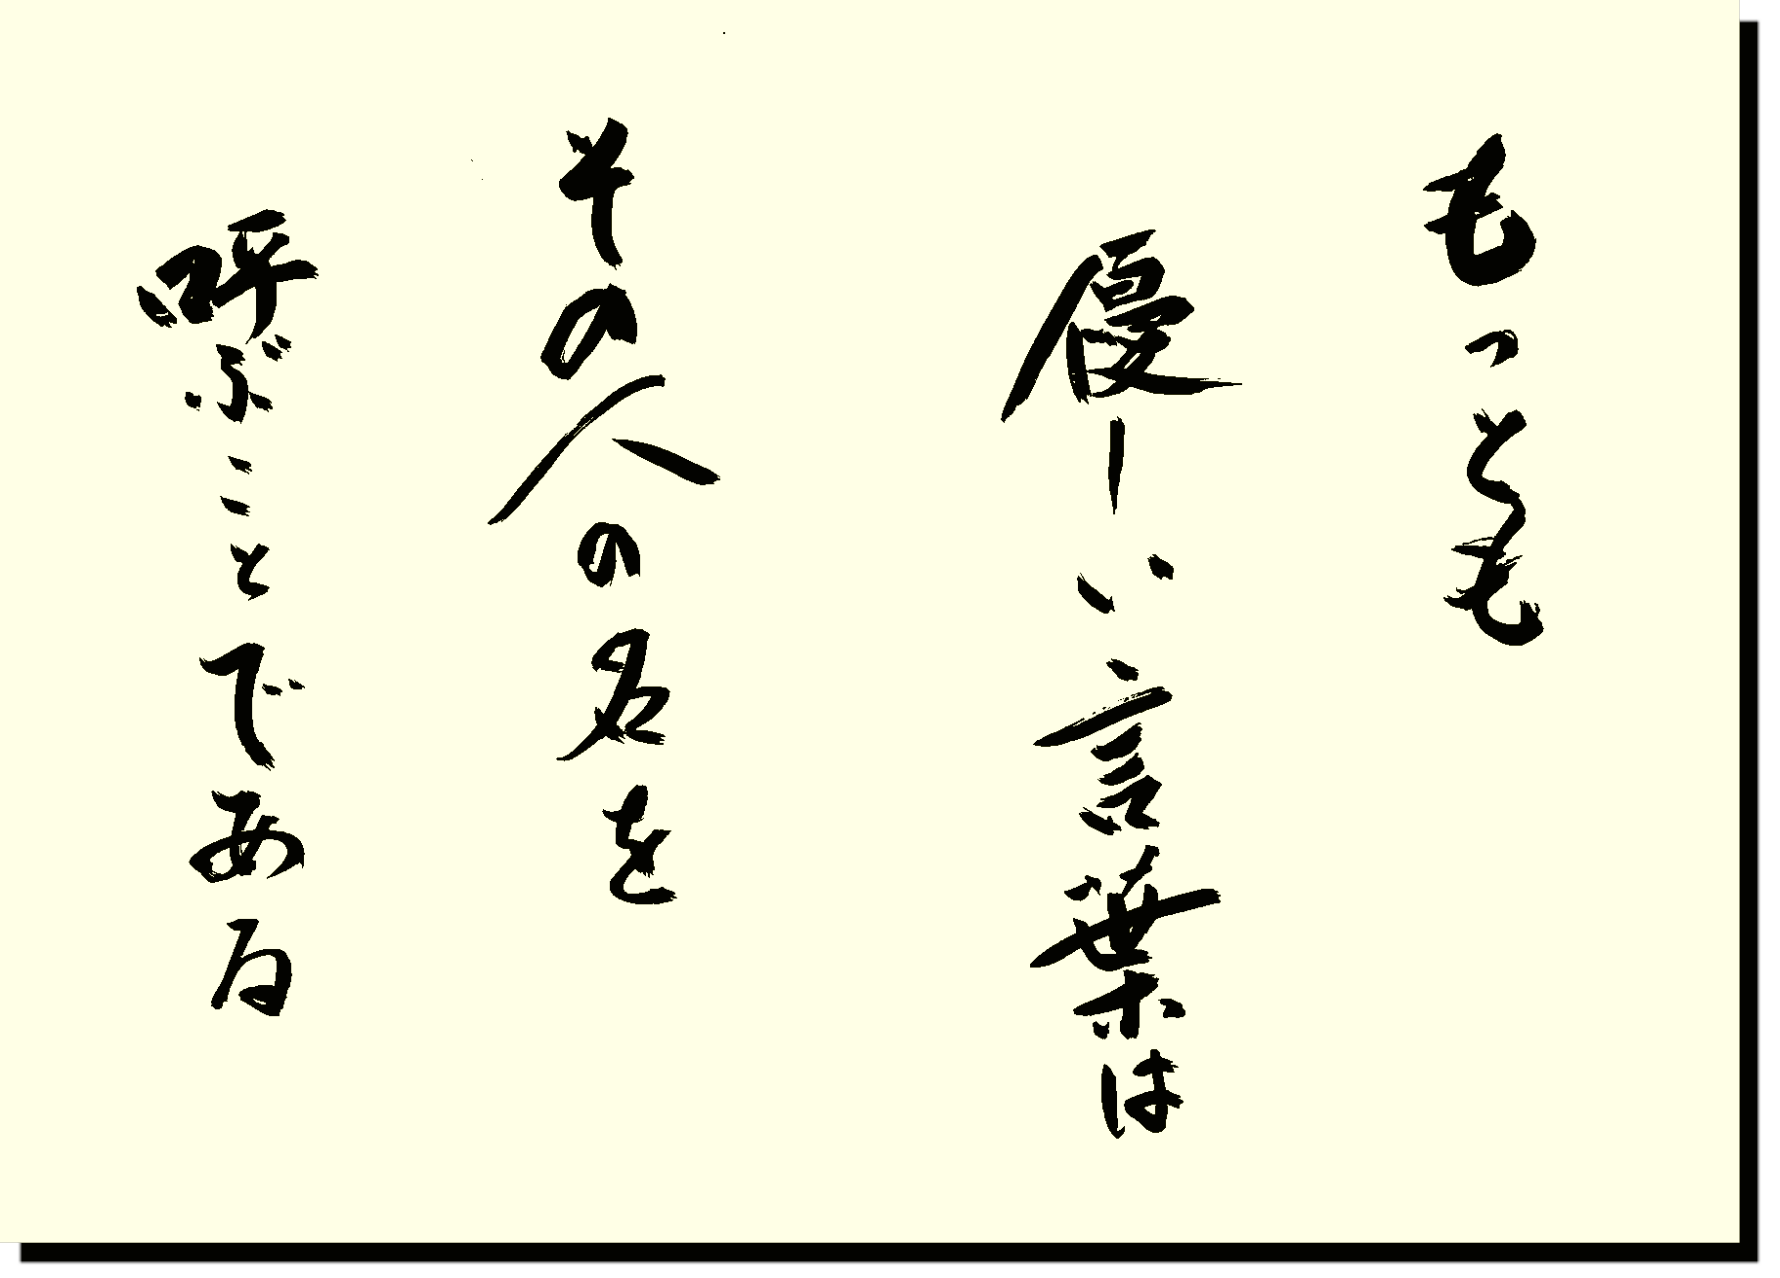 もっとも
優しい言葉は
その人の名を
呼ぶことである